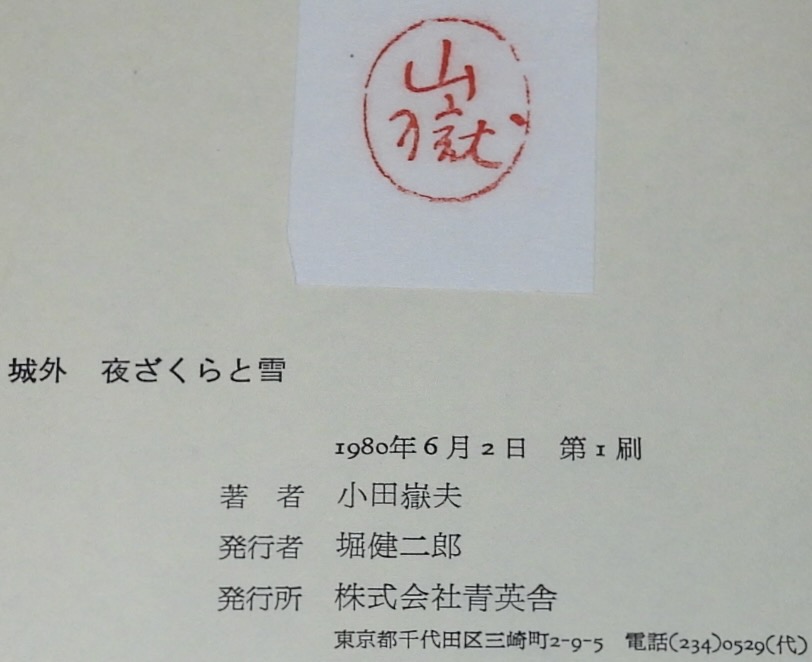 嶽
城外　夜ざくらと雪
1980年6月2日　第1刷
著　者　小田嶽夫
発行者　堀健二郎
発行所　株式会社青英舎
東京都千代田区三崎町2-9-5　電話(234)0529(代)